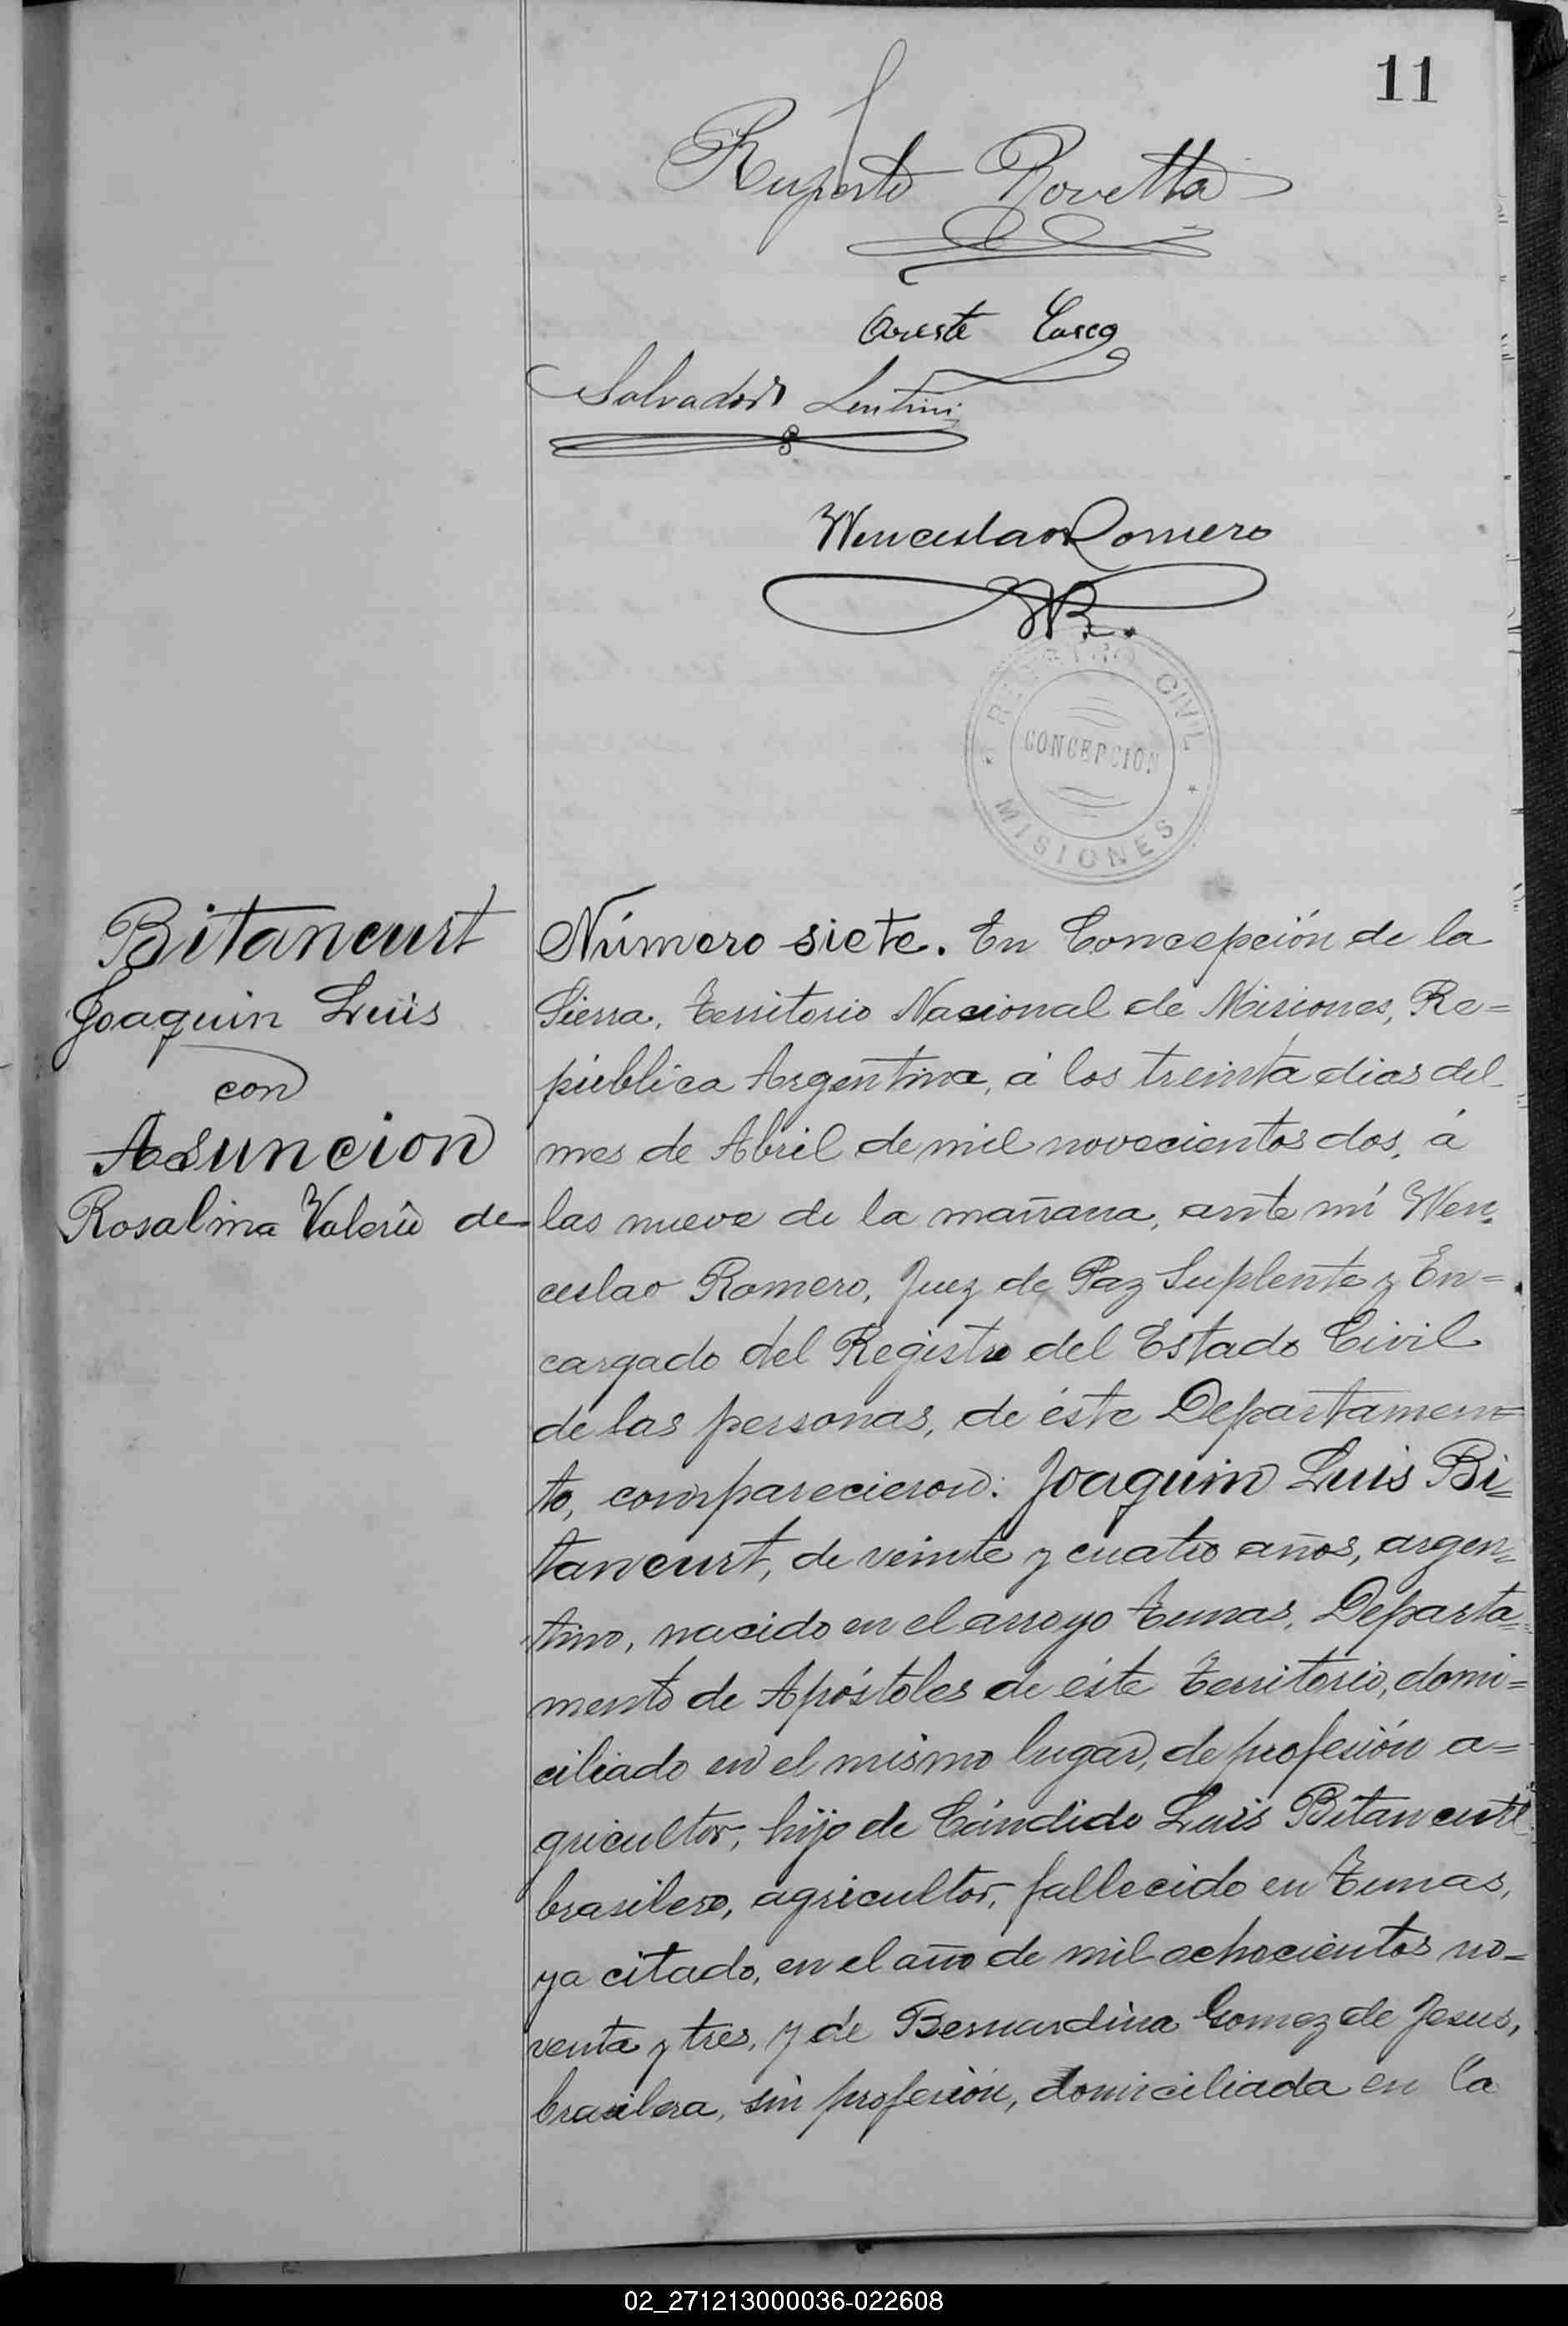 11
Ruperto Rovetta
Oreste
Salvador Lentini
Wenceslao Romero
WR.
REGISTRO CIVIL
CONCEPCION
MISIONES
Bitancurt
Joaquin Luis
con
Asuncion
Rosalina Valerio de
Número siete. En Concepción de la
Sierra, Territorio Nacional de Misiones, Re=
pública Argentina, á los treinta dias del
mes de Abril de mil novecientos dos, á
las nueve de la mañana, ante mí Wen=
ceslao Romero, Juez de Paz Suplente y En=
cargado del Registro del Estado Civil
de las personas, de éste Departamen=
to, comparecieron: Joaquin Luis Bi=
tancurt, de veinte y cuatro años, argen=
tino, nacido en el arroyo Tunas, Departa=
mento de Apóstoles de éste Territorio, domi=
ciliado en el mismo lugar, de profesión a=
gricultor, hijo de Cándido Luis Bitancurt
brasilero, agricultor, fallecido en Tunas,
ya citado, en el año de mil ochocientos no=
venta y tres, y de Bernardina Gomez de Jesus,
brasilera, sin profesión, domiciliada en la
02_271213000036-022608